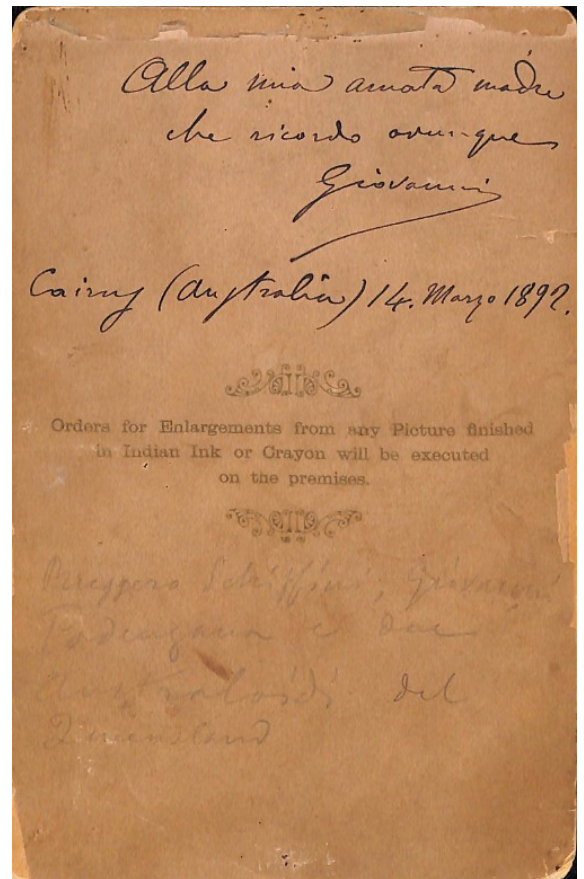 Alla mia amata madre
che ricordo ovunque
Giovanni
Cairns (Australia) 14. Marzo 1892.
Orders for Enlargements from any Picture finished
in Indian Ink or Crayon will be executed
on the premises.
Schiffini, Giovanni
e due
Australoidi del
Queensland